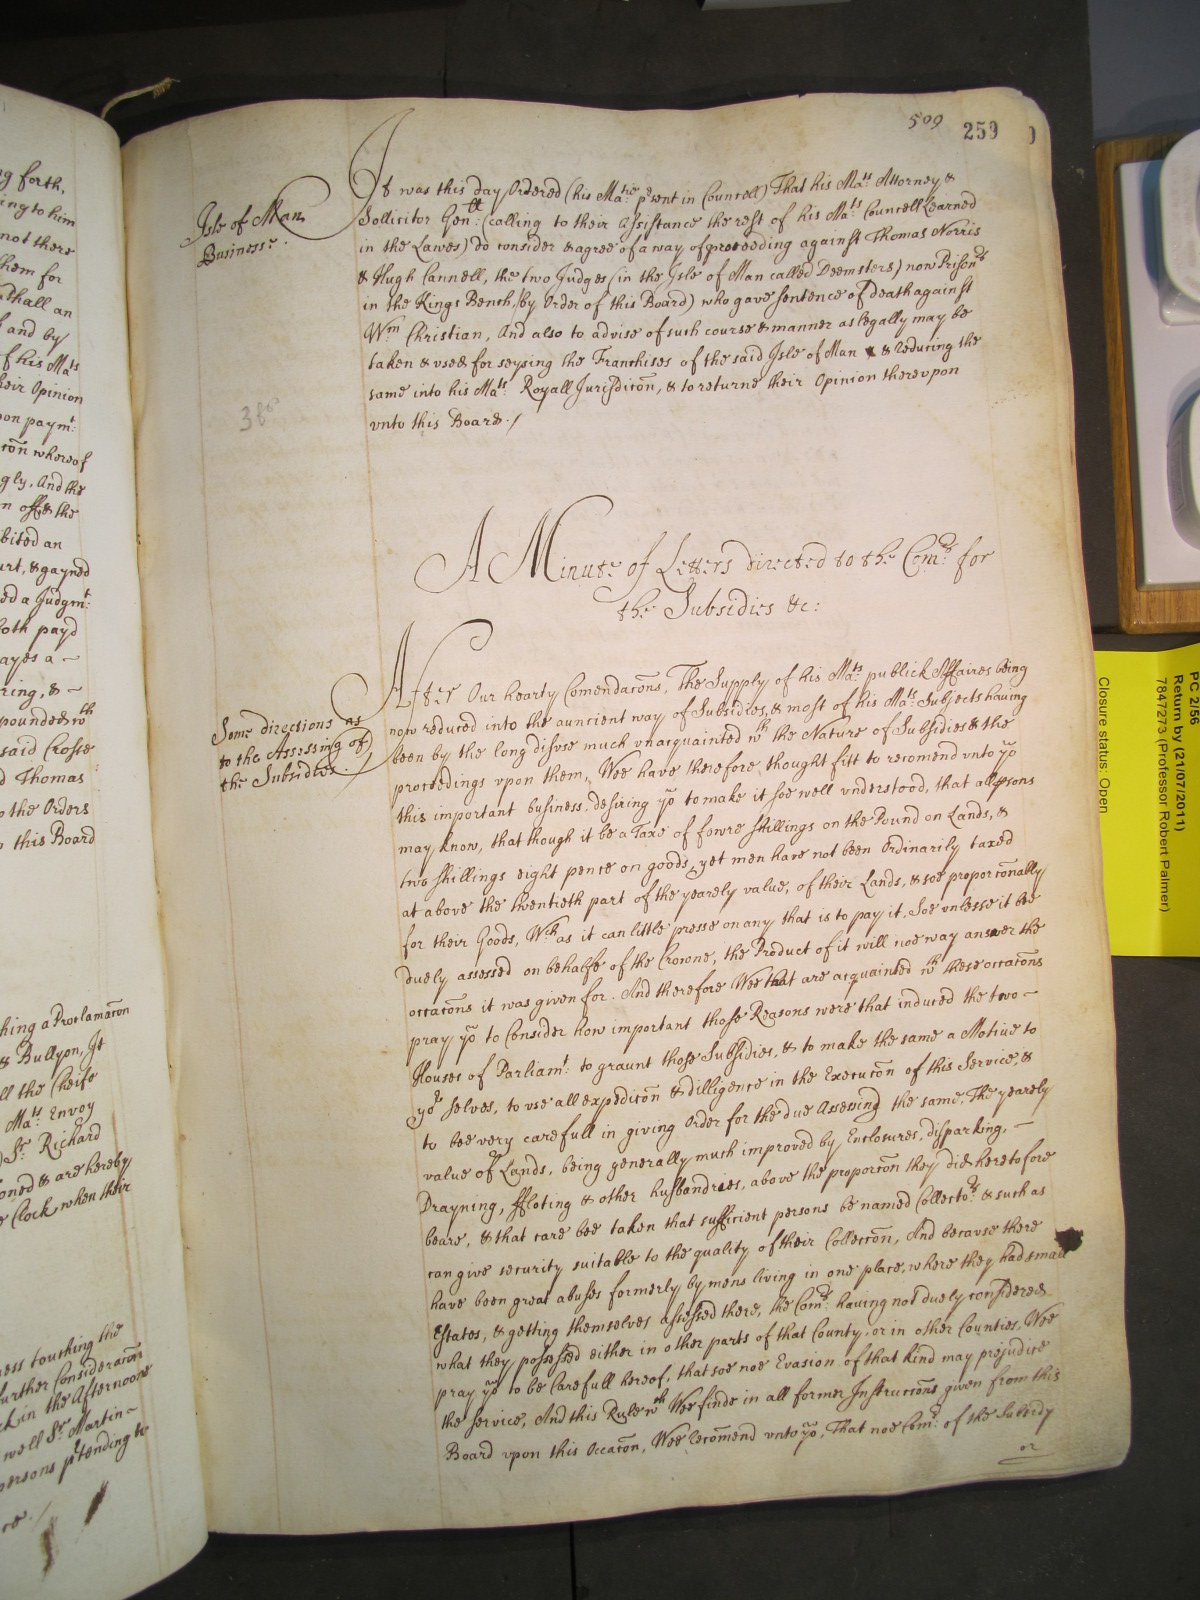 509
259
Isle of Man
Businesse.
It was this day Ordered (his Ma:tie p̱sent in Councell) That his Ma:ts Attorney &
Sollicitor Gen:ll (calling to their Assistance the rest of his Ma:ts Councell Learned
in the Lawes) do consider & agree of a way of proceeding against Thomas Norris
& Hugh Cannell, the two Judges (in the Isle of Man called Deemsters) now Prison:rs
in the Kings Bench, (by Order of this Board) who gave sentence of death against
Wm Christian, And also to advise of such course & manner as legally may be
taken & vsed for seysing the Franchises of the said Isle of Man & Reducing the
same into his Ma:ts Royall Jurisdicc̃on, & to returne their Opinion therevpon
vnto this Board./
A Minute of Letters directed to the Com:rs for
the Subsidies &c:
Some directions as
to the Assessing of
the Subsidies.
After Our hearty Comendac̃ons, The Supply of his Ma:ts publick Affaires being
now reduced into the auncient way of Subsidies, & most of his Ma:ts Subjects having
been by the long disvse much vnacquainted wth the Nature of Subsidies & the
proceedings vpon them, Wee have therefore thought fitt to recomend vnto yo
this important business, desiring yo to make it soe well vnderstood, that all p̱sons
may know, that though it be a Taxe of fowre shillings on the Pound on Lands, &
two shillings eight pence on goods, yet men have not been Ordinarily taxed
at above the twentieth part of the yearely value, of their Lands, & soe proporc̃onally
for their Goods, Wch as it can little presse on any that is to pay it, Soe vnlesse it bee
duely assessed on behalfe of the Crowne, the Product of it will noe way answer the
occac̃ons it was given for. And therefore Wee that are acquainted wth these occac̃ons
pray yo to Consider how important those Reasons were that induced the two –
Houses of Parliam:t to graunt those Subsidies, & to make the same a Motive to
yor selves, to vse all expedic̃on & dilligence in the Execuc̃on of this Service, &
to bee very carefull in giving Order for the due Assessing the same, The yearely
value of Lands, being generally much improved by Enclosures, disparking, –
Drayning, ffloting & other husbandries, above the proporc̃on they did heretofore
beare, & that care bee taken that sufficient persons be named Collecto:rs & such as
can give security suitable to the quality of their Collecc̃on, And because there
have been great abuses formerly by mens living in one place, where they had small
Estates, & getting themselves assessed there, the Com:rs having not duely considered
what they possessed either in other parts of that County, or in other Counties, Wee
pray yo to be Carefull hereof, that soe noe Evasion of that kind may prejudice
the service, And this Rule wch Wee finde in all former Instrucc̃ons given from this
Board vpon this Occac̃on, Wee Recom̃end vnto yo, That noe Com:r of the Subsidy
or
g forth,
ing to him
not there
them for
shall an
and by
of his Mats
heir Opinion
pon paym:t
c̃on whereof
gly, And the
bited an
urt, & gayned
ed a Judgm:t
oth payd
ayes a –
ring, & –
pounded wth
said Crosse
d Thomas
the Orders
this Board
hing a Proclamac̃on
& Bullyon, It
ll the Cheife
Ma:ts Envoy
Sr. Richard
oned & are hereby
Clock when their
ess touching the
further Considerac̃on
ck in the Afternoone
well Sr. Martin –
persons p̱tending to
PC 2/56
Return by (21/07/2011)
7847273 (Professor Robert Palmer)
Closure status: Open